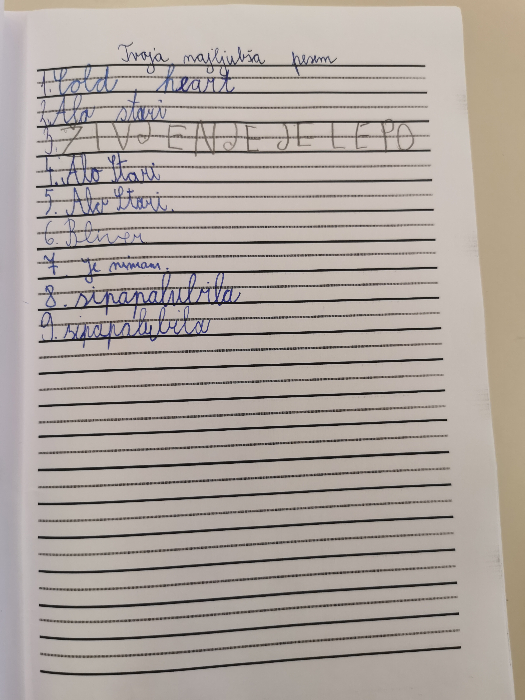 Tvoja najljubša pesem
1. Cold heart
2. Alo stari
3. ŽIVJENJE JE LEPO
4. Alo Stari
5. Alo Stari.
6. Bliver
7 Je nimam.
8. sipapalubila
9. sipapalubila